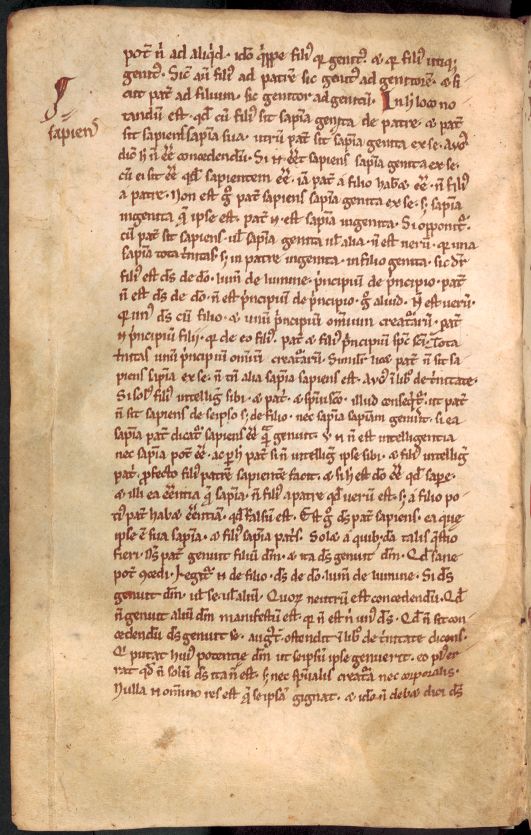 pot̄ n̄ ad aliq́d · idō q́ippe filiꝰ qꝛ genitꝰ · & qꝛ filiꝰ utiq;
genitꝰ · Sic̄ aūt filiꝰ ad patrē sic genitꝰ ad genitorē · & si
cut pat̄ ad filium · sic genitor ad genitū · In h̄ loco no
sapiens
tandū est · qđ cū filiꝰ sit sapīa genita de patre · & pat̄
sit sapiens sapīa sua · utrū pat̄ sit sapīa genita ex se · Aug
đ h̄ n̄ eē concedendū · Si n̄ eēt sapiens sapīa genita ex se ·
cū ei sit eē qđ sapientem eē · iā pat̄ a filio habꝫ eē · n̄ filiꝰ
a patre · Non est g̊ pat̄ sapiens sapīa genita ex se · s; sapīa
ingenita · q̄ ipse est · pat̄ n̄ est sapīa ingenita · Si opponit̄ ·
cū pat̄ sit sapiens · ul̄ sapīa genita ul̄ alia · n̄ est uerū · qꝛ una
sapīa tota t́nitas · s; in patre ingenita · in filio genita · sic dr̄
filiꝰ est dś de dō · lum̄ de lumine · ṕncipiū de ṕncipio · pat̄
n̄ est dś de dō · n̄ est ṕncipiū de ṕncipio · g̊ aliud · n̄ est uerū ·
qꝛ unꝰ dś cū filio · & unū ṕncipiū omnium creat̄arū · pat̄
n̄ ṕncipium filii · qꝛ de eo filiꝰ · pat̄ & filiꝰ ṕncipiū sṕc sc̄i · Tota
t́nitas unū ṕncipiū omniū creat̄arū · Similit̄ licꝫ pat̄ n̄ sit sa
piens sapīa ex se · n̄ tn̄ alia sapīa sapiens est · Augꝰ ī lib̊ de t́nitate ·
Si solꝰ filiꝰ intelligit̄ sibi · & pat́ · & sṕuisco · illud conseq̄t̄ · ut pat̄
n̄ sit sapiens de seipso s; de filio · nec sapīa sapīam genuit̄ · s; ea
sapīa pat̄ dicat̄ sapiens eē q̄ genuit · U n̄ n̄ est intelligentia
nec sapīa pot̄ eē · ac ꝑ h̄ pat̄ si n̄ intelligit̄ ipse sibi · & filiꝰ intelligit̄
pat́ · ꝓfecto filiꝰ patrē sapientē facit · & si h̄ est dō eē qđ sape ·
& illi ea eēntia q̄ sapīa · n̄ filiꝰ a patre qđ uerū est · s; a filio po
tiꝰ pat̄ habꝫ eēntiā · qđ falsū est · Est g̊ dś pat̄ sapiens · ea que
ipse ē sua sapīa · & filiꝰ sapīa pat́s · Solꝫ a quib̊dā talis q̄stio
fieri · Dś pat̄ genuit filiū dm̄ · & ita dś genuit dm̄ · Qđ sane
pot̄ ꝯcedi · Legit̄ n̄ de filio · dś de dō · lum̄ de lumine · Si dś
genuit dm̄ · ul̄ se ul̄ aliū · Quoꝝ neutrū est concedendū · Qđ
n̄ genuit aliū dm̄ manifestū est · qꝛ n̄ est n̄ unꝰ dś · Qđ n̄ sit con
cedendū dś genuit se · augꝰt̄ · ostendit ī lib̊ de t́nitate dicens ·
Qꝛ putat huiꝰ potentie dm̄ ut seipsū ipse genuerit · eo plꝰ er
rat qđ n̄ solū dś ita n̄ est · s; nec sṕualis creat̄a nec corporalis ·
Nulla n̄ omīno res est q̄ seipsā gignat · & idō n̄ debꝫ dici dś